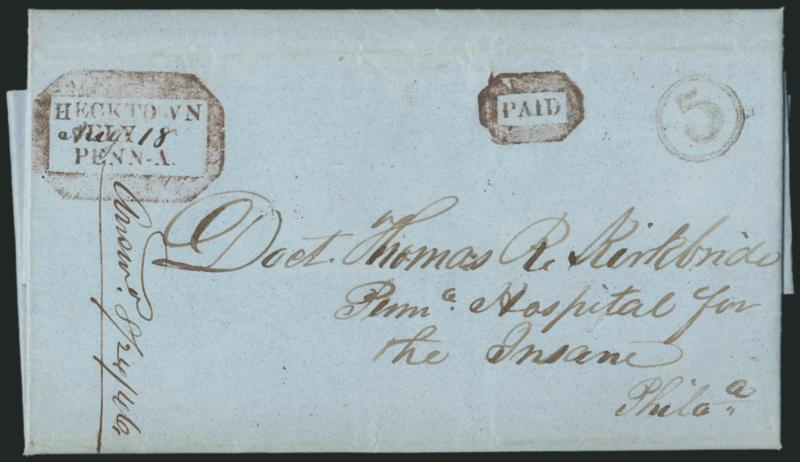 HECKTOWN
Aug 18
PENN-A.
PAID
5
Doct. Thomas R. Kirkbride
Penna. Hospital for
the Insane
Phila.
Answd. 8/24/46